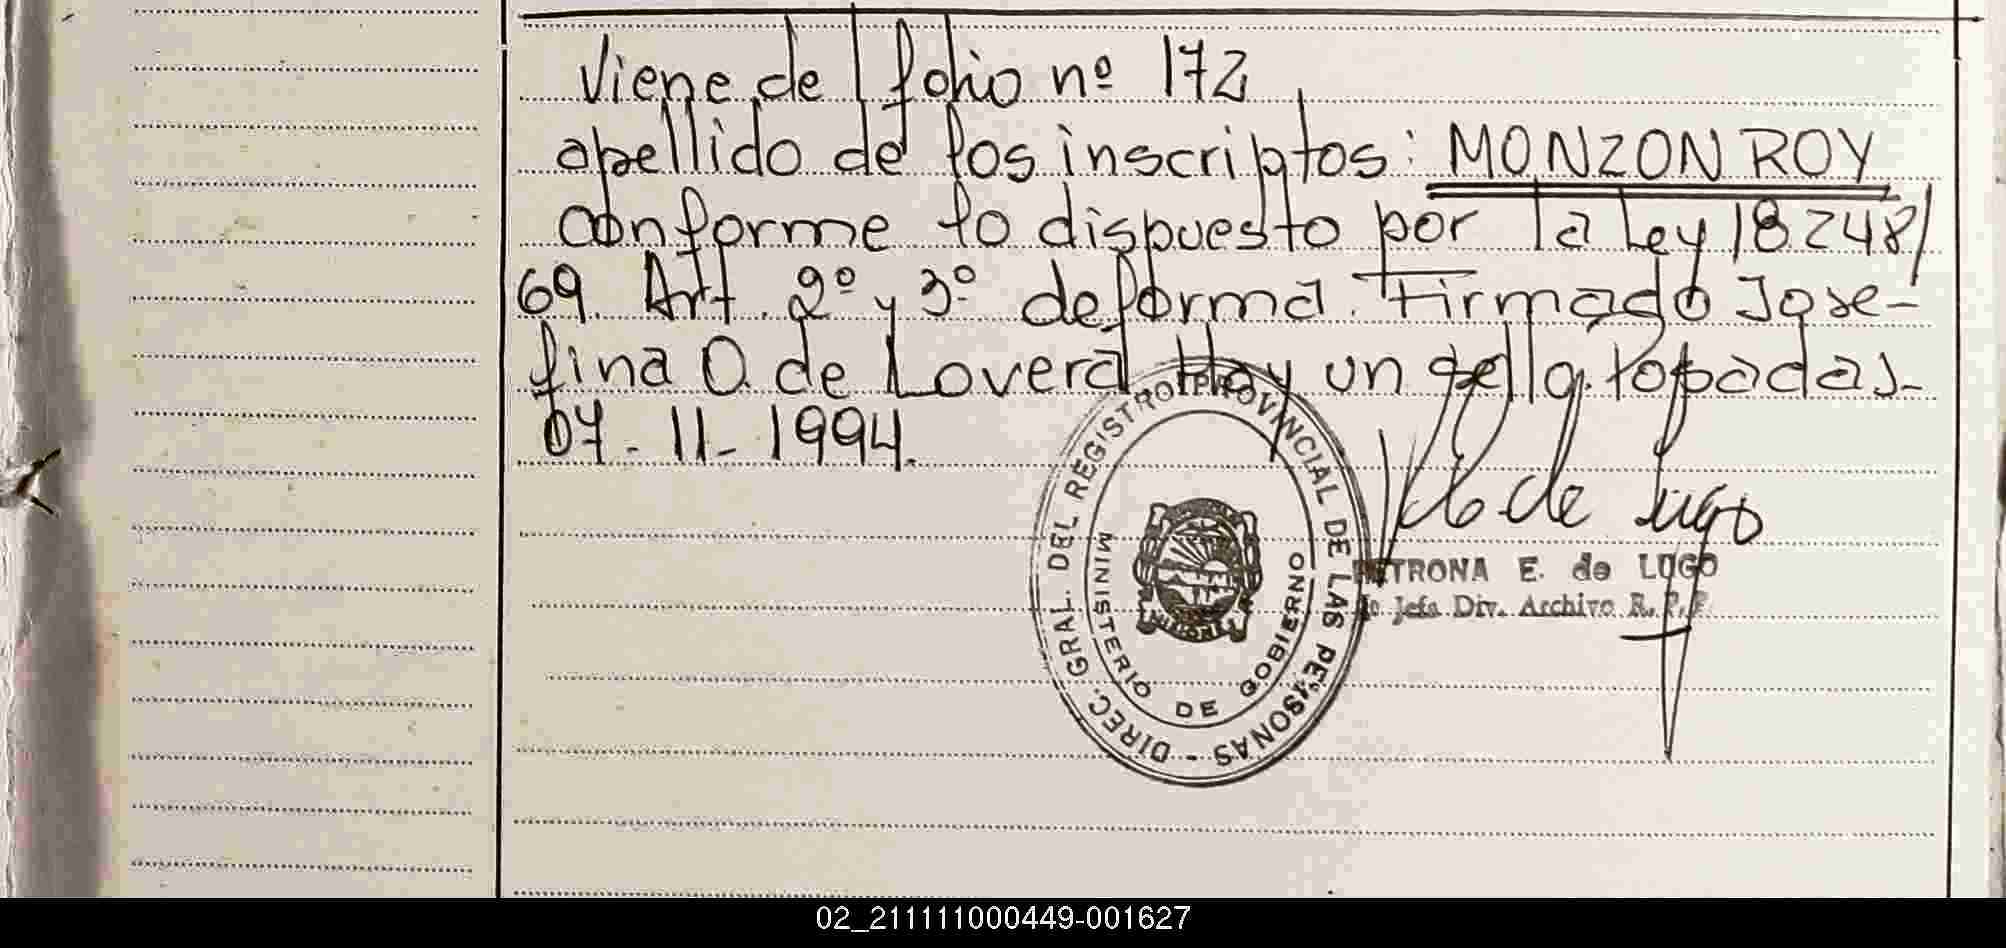 Viene del folio nº 172
apellido de los inscriptos: MONZON ROY
conforme lo dispuesto por la Ley 18248/
69. Art. 2º y 3º de forma. Firmado Jose-
fina O. de Lovera. Hay un sello. Posadas-
07-11-1994.
DIREC. GRAL. DEL REGISTRO PROVINCIAL DE LAS PERSONAS -
MINISTERIO DE GOBIERNO
MISIONES
de Lugo
PETRONA E. de LUGO
Jefa Div. Archivo R. P. P.
02_211111000449-001627